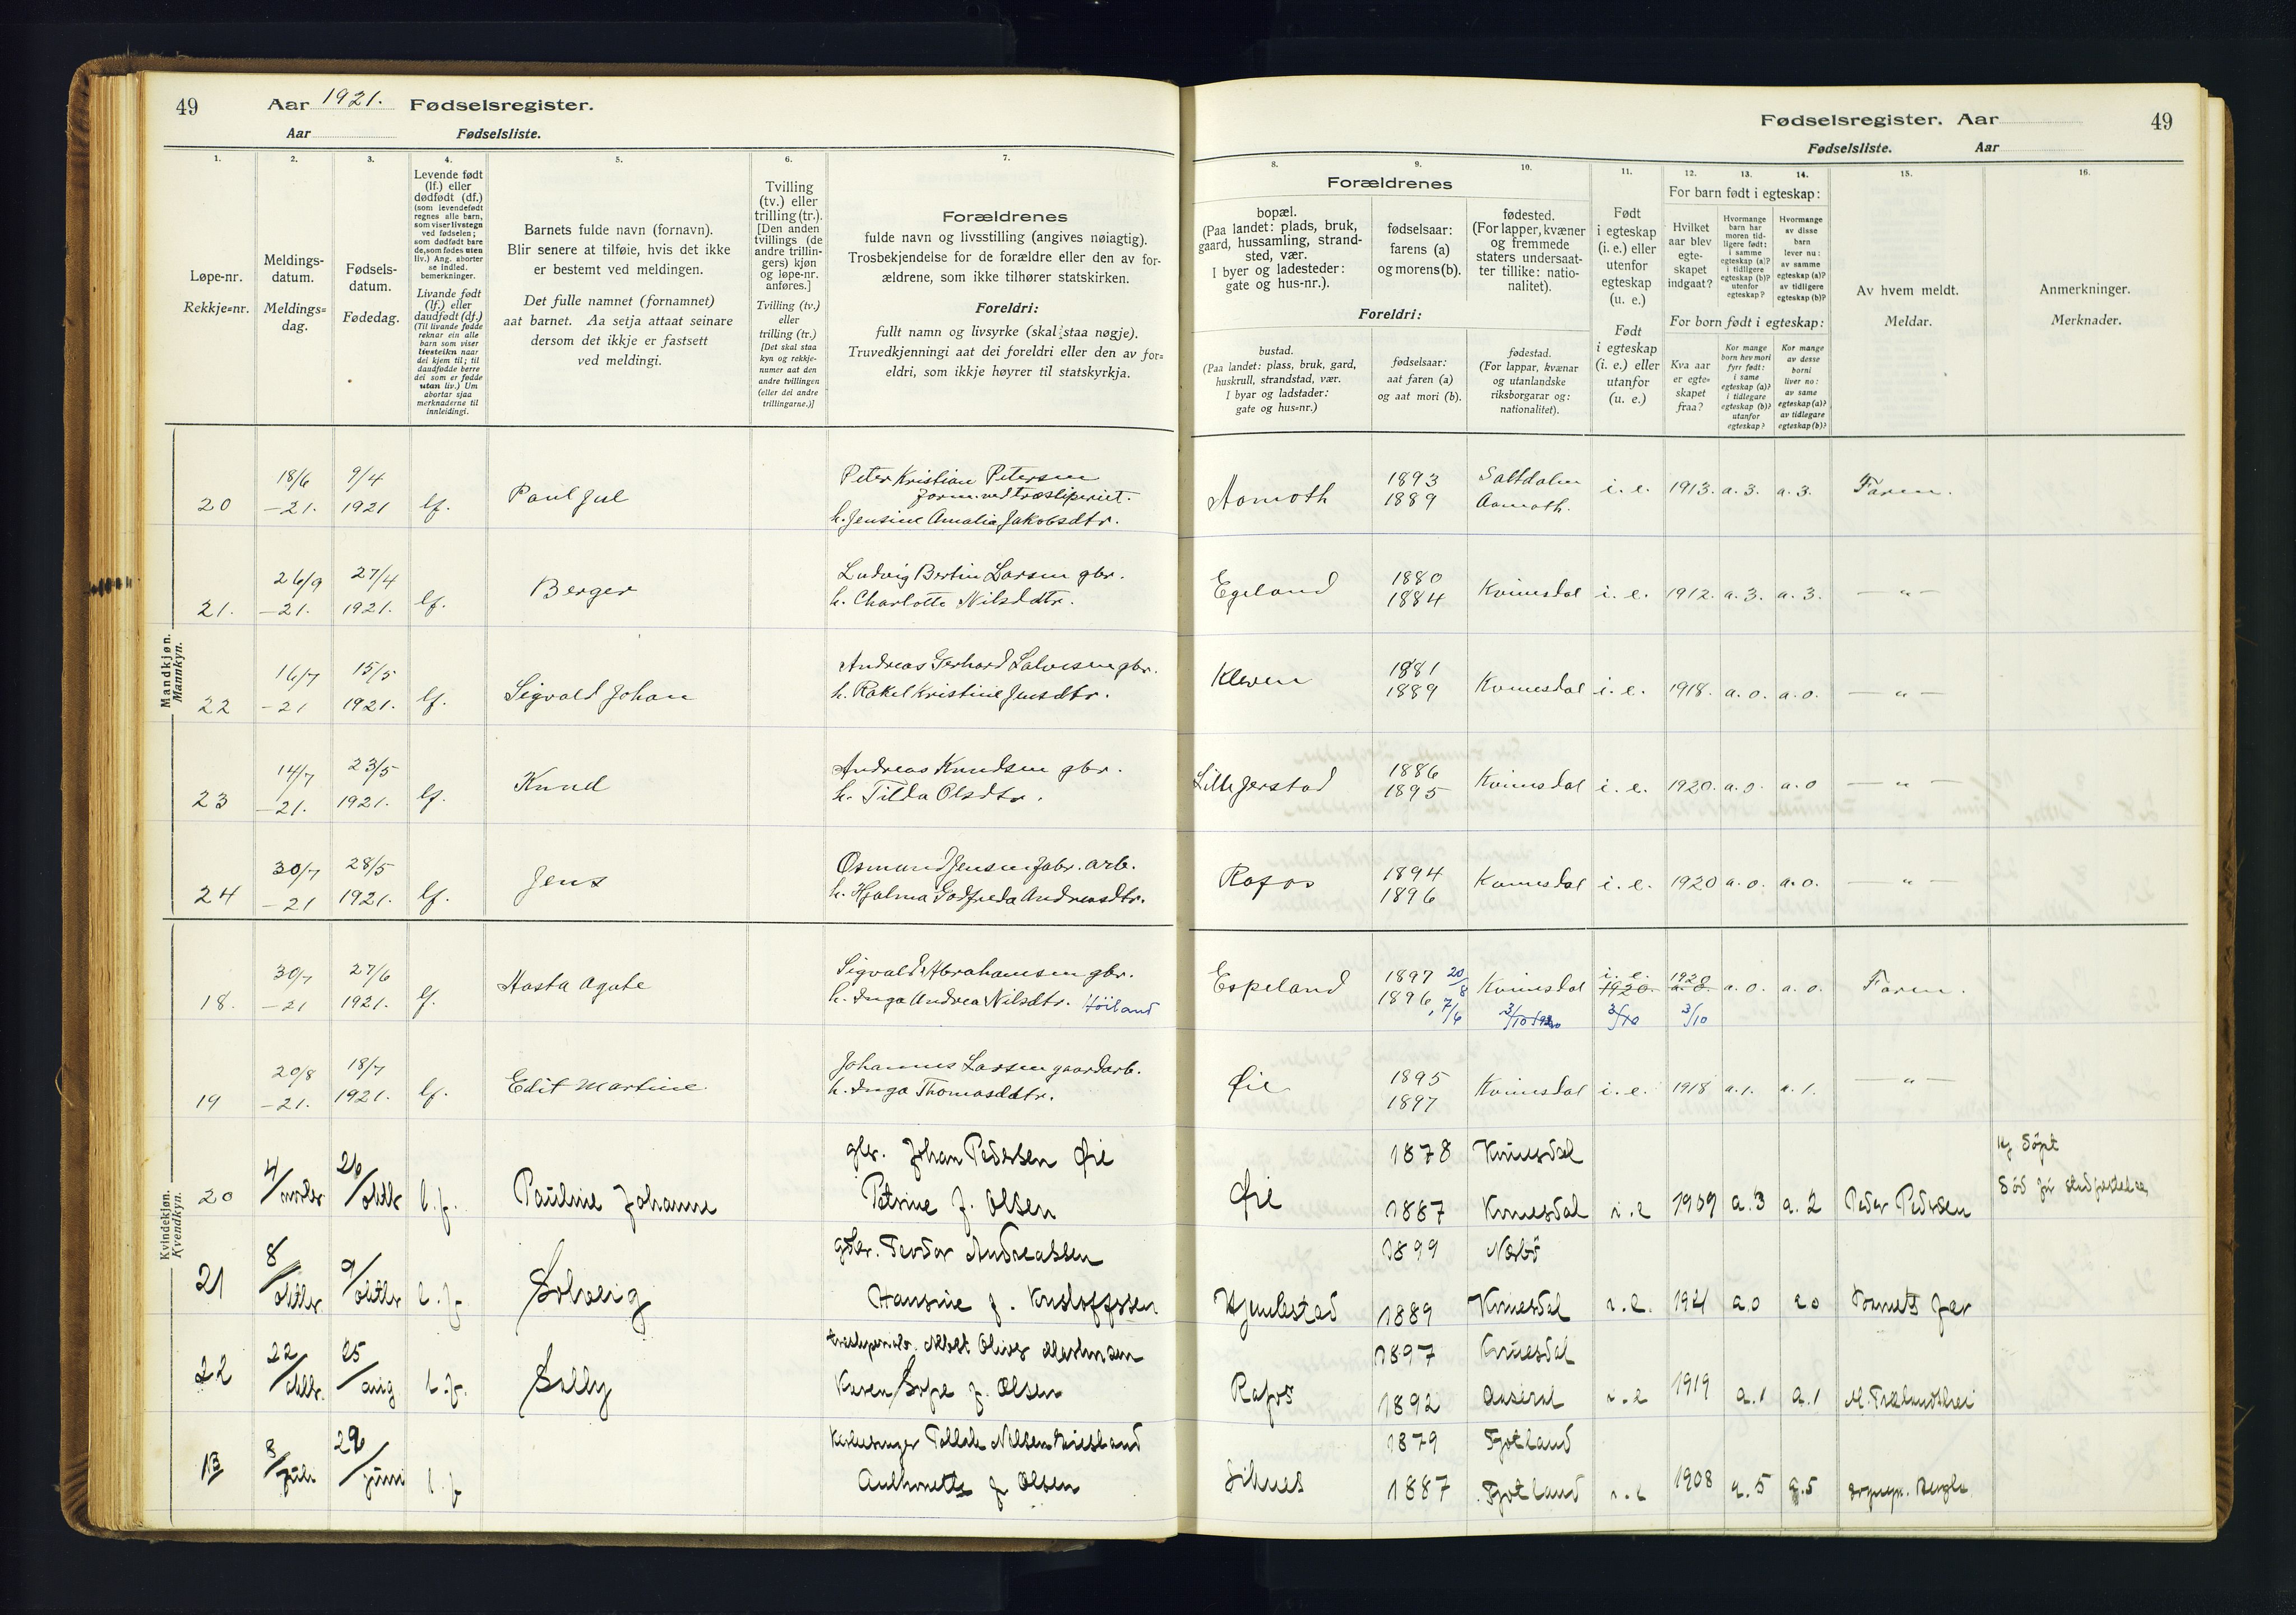 49
Aar 1921. Fødselsregister.
Aar Fødselsliste.
Fødselsregister. Aar
49
Fødselsliste. Aar
1.
Løpe-nr.
Rekkje=nr.
2.
Meldings-
datum.
Meldings=
dag.
3.
Fødsels-
datum.
Fødedag.
4.
Levende født
(lf.) eller
dødfødt (df.)
(som levendefødt
regnes alle barn,
som viser livstegn
ved fødselen;
som dødfødt bare
de, som fødes uten
liv.) Ang. aborter
se indled.
bemerkninger.
Livande født
(lf.) eller
daudfødt (df.)
(Til livande fødde
reknar ein alle
barn som viser
livsteikn naar
dei kjem til; til
daudfødde berre
dei som er fødde
utan liv.) Um
abortar sjaa
merknaderne til
innleidingi.
5.
Barnets fulde navn (fornavn).
Blir senere at tilføie, hvis det ikke
er bestemt ved meldingen.
Det fulle namnet (fornamnet)
aat barnet. Aa setja attaat seinare
dersom det ikkje er fastsett
ved meldingi.
6.
Tvilling
(tv.) eller
trilling (tr.).
[Den anden
tvillings (de
andre trillin-
gers) kjøn
og løpe-nr.
anføres.]
Tvilling (tv.)
eller
trilling (tr.)
[Det skal staa
kyn og rekkje-
numer aat den
andre tvillingen
(eller dei andre
trillingarne.)]
7.
Forældrenes
fulde navn og livsstilling (angives nøiagtig).
Trosbekjendelse for de forældre eller den av for-
ældrene, som ikke tilhører statskirken.
Foreldri:
fullt namn og livsyrke (skal staa nøgje).
Truvedkjenningi aat dei foreldri eller den av for=
eldri, som ikkje høyrer til statskyrkja.
8.
Forældrenes
bopæl.
(Paa landet: plads, bruk,
gaard, hussamling, strand-
sted, vær.
I byer og ladesteder:
gate og hus-nr.).
Foreldri:
bustad.
(Paa landet: plass, bruk, gard,
huskrull, strandstad, vær.
I byar og ladstader:
gate og hus=nr.)
9.
fødselsaar:
farens (a)
og morens (b).
fødselsaar:
aat faren (a)
og aat mori (b).
10.
fødested.
(For lapper, kvæner
og fremmede
staters undersaat-
ter tillike: natio-
nalitet).
fødestad.
(For lappar, kvænar
og utanlandske
riksborgarar og:
nationalitet).
11.
Født
i egteskap
(i. e.) eller
utenfor
egteskap
(u. e.)
Født
i egteskap
(i. e.) eller
utanfor
(u. e.)
12. 13. 14.
For barn født i egteskap:
Hvilket
aar blev
egte-
skapet
indgaat?
Hvormange
barn har
moren tid-
ligere født:
i samme
egteskap (a)?
i tidligere
egteskap (b)?
utenfor
egteskap?
Hvormange
av disse
barn
lever nu:
av samme
egteskap (a)?
av tidligere
egteskap (b)?
For born født i egteskap:
Kva aar
er egte=
skapet
fraa?
Kor mange
born hev mori
fyrr født:
i same
egteskap (a)?
i tidlegare
egteskap (b)?
utanfor
egteskap?
Kor mange
av desse
borni
liver no:
av same
egteskap (a)?
av tidlegare
egteskap (b)?
15.
Av hvem meldt.
Meldar.
16.
Anmerkninger.
Merknader.
Mandkjøn.
Mannkyn.
20 18/6 -21. 9/4 1921 lf. Paul Jul
Peter Kristian Petersen
form. ved træsliperiet.
h. Jensine Amalia Jakobsdtr.
Aamoth 1893 1889 Saltdalen Aamoth. i. e. 1913. a. 3. a. 3. Faren.
21. 26/9 -21. 27/4 1921. lf. Berger
Ludvig Bertin Larsen gbr.
h. Charlotte Nilsdtr.
Egeland 1880 1884 Kvinesdal i. e. 1912. a. 3. a. 3. — " —
22 16/7 -21 15/5 1921. lf. Sigvald Johan
Andreas Gerhard Salvesen gbr.
h. Rakel Kristine Jensdtr.
Kleven 1881 1889 Kvinesdal i. e. 1918. a. o. a. o. — " —
23 14/7 -21. 23/5 1921. lf. Knud
Andreas Knudsen gbr.
h. Tilda Olsdtr.
Lille Jerstad 1886 1895 Kvinesdal i. e. 1920. a. o. a. o — " —
24 30/7 -21 28/5 1921. lf. Jens
Osmund Jensen fabr. arb.
h. Hjalma Godfreda Andreasdtr.
Rafos 1894 1896 Kvinesdal i. e. 1920 a. o. a. o. — " —
Kvindekjøn.
Kvendkyn.
18. 30/7 -21 27/6 1921. lf. Aasta Agate
Sigvald Abrahamsen gbr.
h. Inga Andrea Nilsdtr. Höiland
Espeland 1897 20/8 1896, 7/6 Kvinesdal 3/10 1920 i. e. 1920. 3/10 1920 a. o. 3/10 a. o. a. o. Faren.
19 20/8 -21. 18/7 1921. lf. Edit Martine
Johannes Larsen gaardarb.
h. Inga Thomasdtr.
Øie 1895 1897 Kvinesdal i. e. 1918 a. 1. a. 1. — " —
20 4/novbr 26/oktbr l. f. Pauline Johanne
gbr. Johan Pedersen Øie
Petrine f. Olsen
Øie 1878 1887 Kvinesdal Kvinesdal i. e 1909 a. 3 a. 2 Peder Pedersen
21 8/oktbr. 9/oktbr l. f. Solveig
gbr. Teodor Andreassen
Hansine f. Kristoffersen
1899 1889 Nærbö Kvinesdal i. e. 1921 a. o a o Barnets far
22 22/oktbr. 25/aug l. f. Solly
Albert Oliver Martinsen
Karen Sofie f. Olsen
Rafos 1897 1892 Kvinesdal Aaseral i. e 1919 a. 1 a. 1
13 3/juli 29/juni l. f
Tallak Nilsen
Anthonette f. Olsen
1879 1887 Fjotland Fjotland i. e 1908 a. 5 a. 5